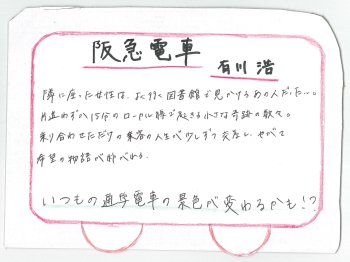 阪急電車
有川 浩
隣に座った女性は、よく行く図書館で見かけるあの人だった…。
片道わずか15分のローカル線で起きる小さな奇跡の数々。
乗り合わせただけの乗客の人生が少しずつ交差し、やがて
希望の物語が紡がれる。
いつもの通学電車の景色が変わるかも!?